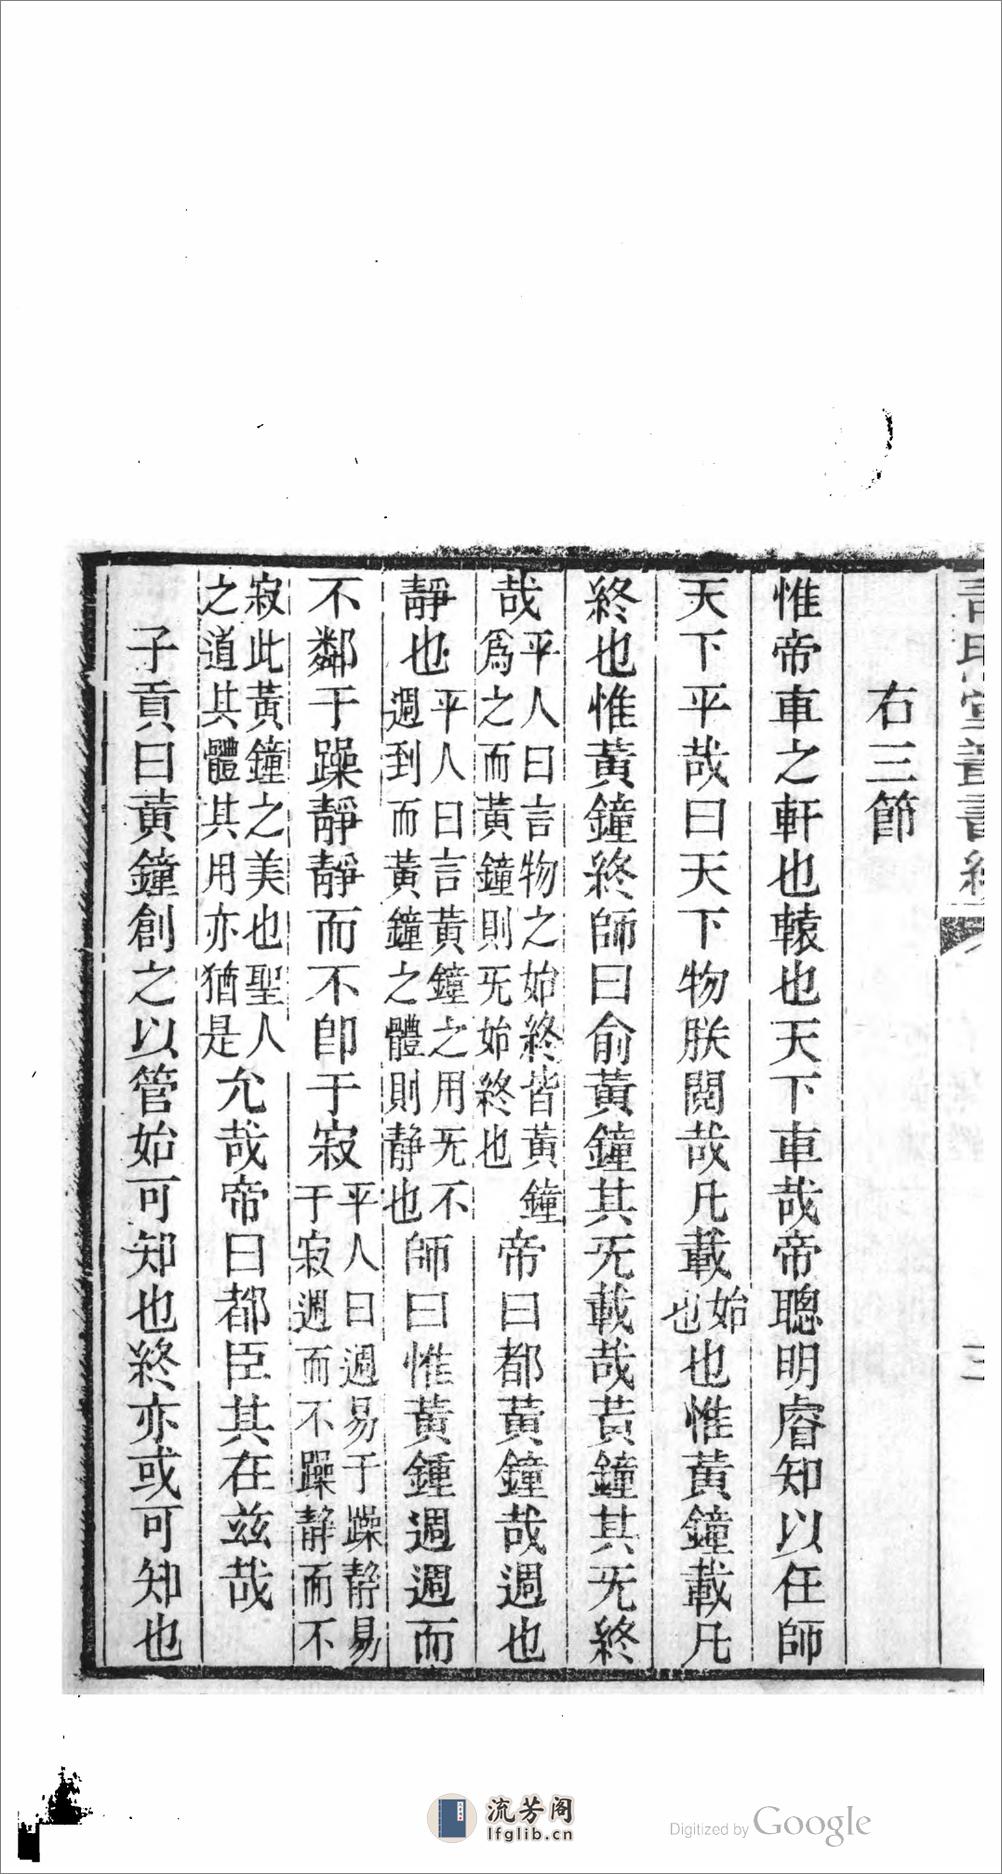 右三節
惟帝車之軒也轅也天下車哉帝聰明睿知以任師
天下平哉曰天下物朕閱哉凡載始也也惟黃鐘載凡
終也惟黃鐘終師曰俞黃鐘其旡載哉黃鐘其旡終
哉平人曰言物之始終皆黃鐘爲之而黃鐘則旡始終也帝曰都黃鐘哉週也
靜也平人曰言黃鐘之用旡不週到而黃鐘之體則静也師曰惟黃鍾週週而
不鄰于躁靜靜而不卽于寂平人曰週易于躁静易于寂週而不躁静而不
寂此黃鐘之美也聖人之道其體其用亦猶是允哉帝曰都臣其在兹哉
子貢曰黃鐘創之以管始可知也終亦或可知也
三
流芳阁
lfglib.cn
Digitized by Google